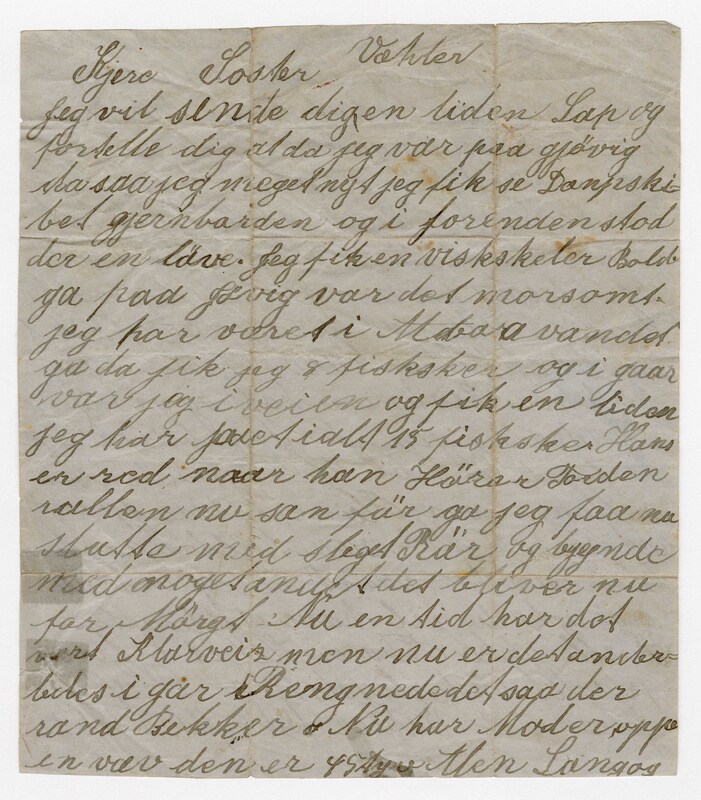 Væhler
Kjere Søster
Jeg vil sende dig en liden Lap og
fortelle dig at da jeg var paa gjøvig
da saa jeg meget nyt jeg fik se Dampski-
bet gjernbarden og i forenden stod
der en löve. Jeg fik en viskskeler Bold
ja paa Jövig var det morsomt.
jeg har været i vandet
ja da fik jeg 8 fisksker og i gaar
var jeg i veien og fik en liden
jeg har faaet ialt 15 fisksker Hans
er red naar han Hörer Torden
rallen nu san für ja jeg faa nu
slutte med sleget Rär og bjgende
med noget andet det bliver nu
for Mörgt Nu en tid har det
vert Klarveir men nu er det ander=
ledes i gar Rengnede det saa der
rand Bekker Nu har Moder oppe
en væv den er 45 Men Lang og